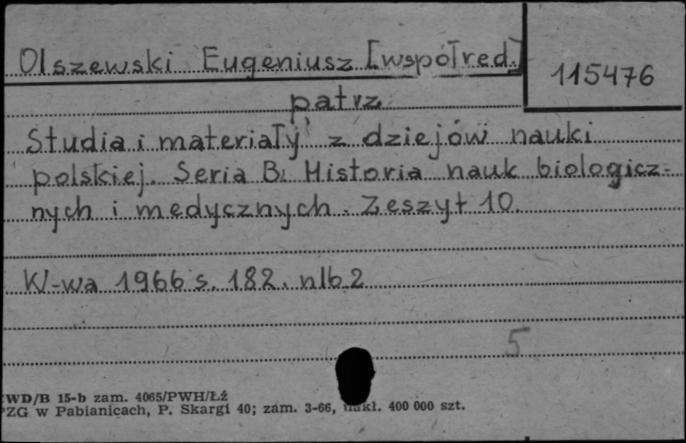 Olszewski Eugeniusz [współred.]
115476
patrz
Studia i materiały z dziejów nauki
polskiej. Seria B. Historia nauk biologicz-
nych i medycznych. Zeszyt 10.
W-wa 1966 s. 182. nlb 2
5
WD/B 15-b zam. 4065/PWH/Łź
PZG w Pabianicach, P. Skargi 40; zam. 3-66, nakł. 400 000 szt.